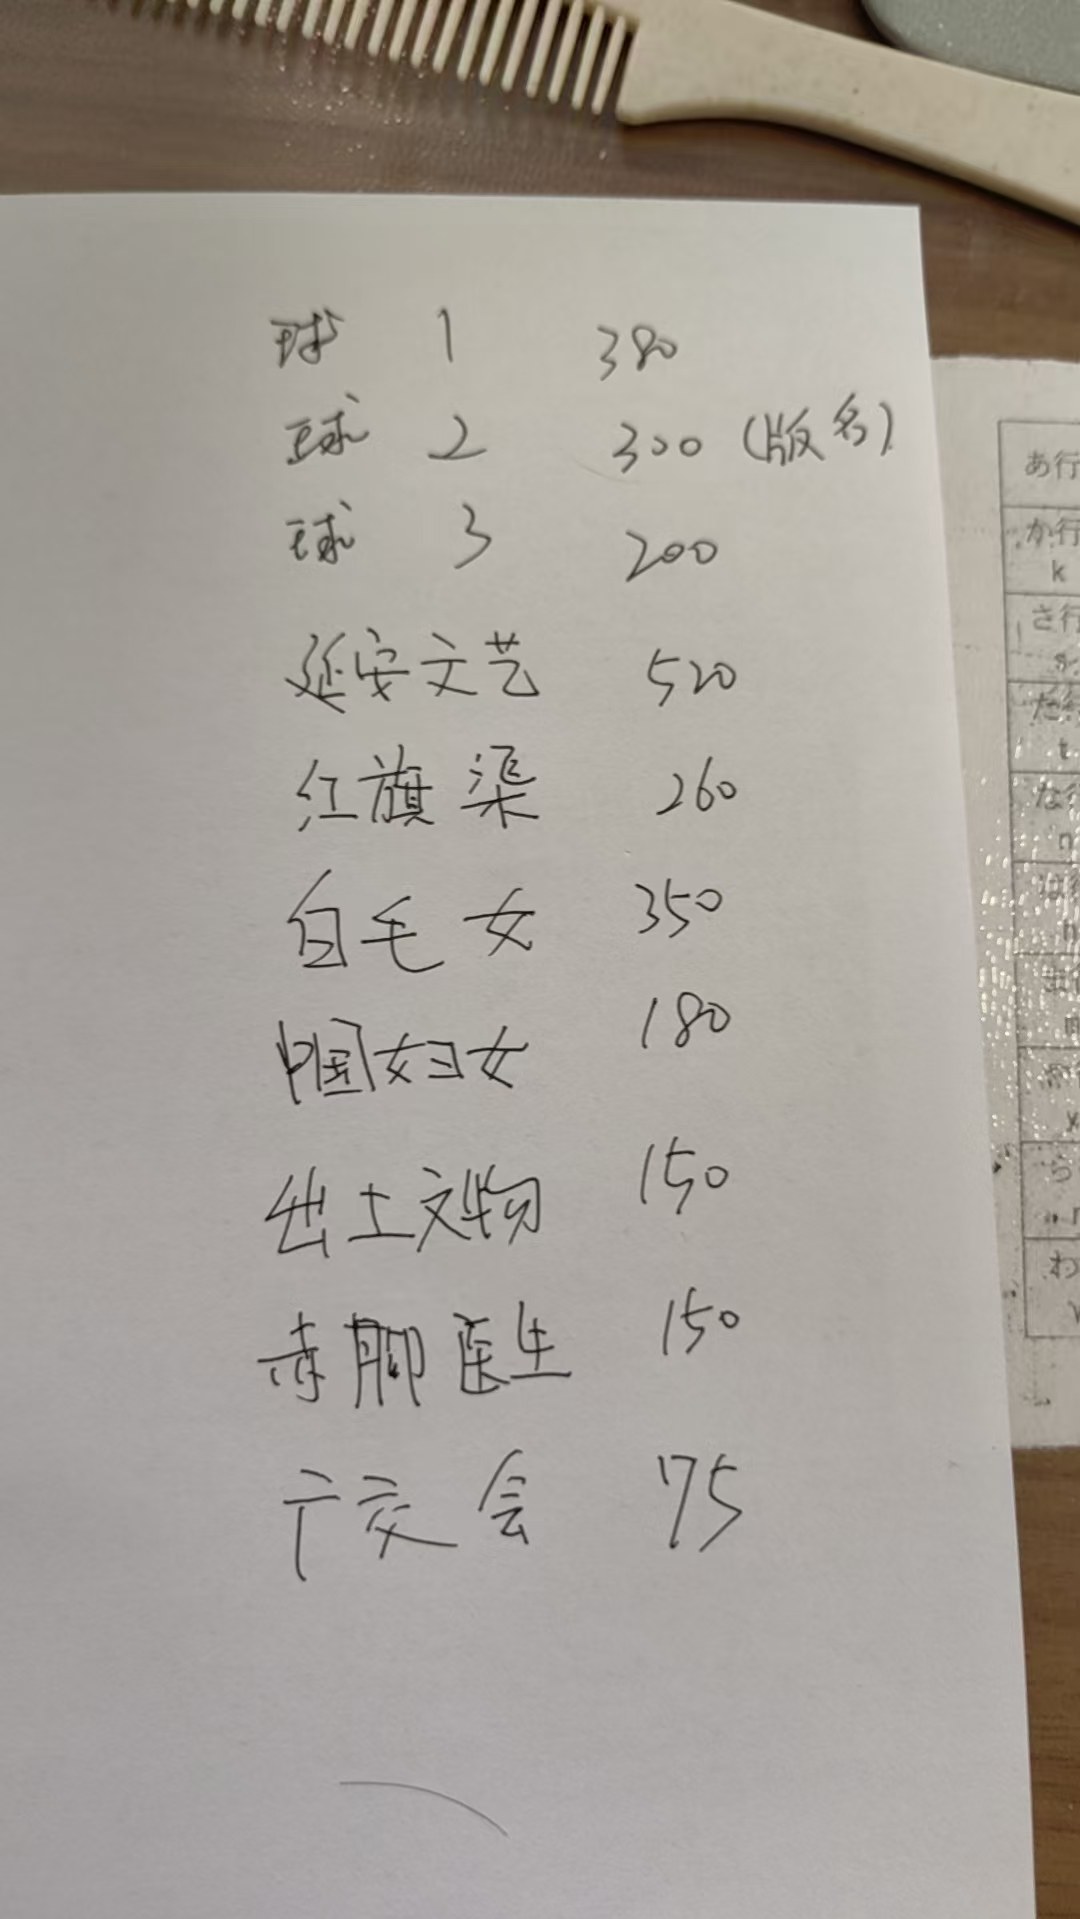 球 1 380
球 2 300 (版名)
球 3 200
延安文艺 520
红旗渠 260
白毛女 350
中国妇女 180
出土文物 150
赤脚医生 150
广交会 75
あ行
か行
k
さ行
s
た行
t
な行
n
は行
ら
r
わ